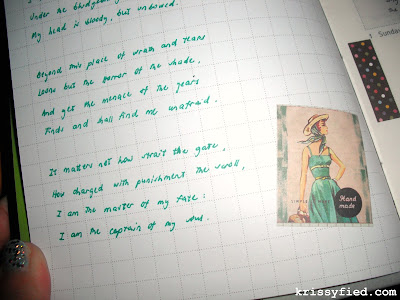 Under the bludgeon
My head is bloody, but unbowed.
Beyond this place of wrath and tears
Looms but the horror of the shade,
And yet the menace of the years
Finds and shall find me unafraid.
It matters not how strait the gate,
How charged with punishment the scroll,
I am the master of my fate:
I am the captain of my soul.
1 Sunda
SIMPLE
Hand
made
krissyfied.com